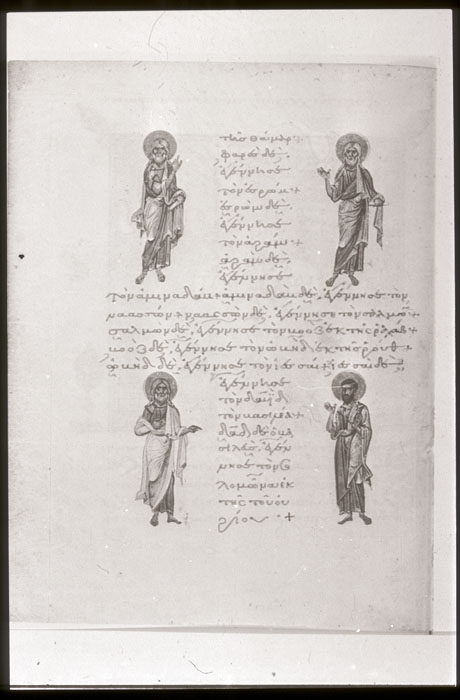 τῆς θάμαρ +
φαρὲς δὲ,
ἐγέννησε
τὸν ἐσρώμ +
ἐσρὼμ δὲ,
ἐγέννησε
τὸν ἀράμ +
ἀρὰμ δὲ,
ἐγέννησε
τὸν ἀμιναδάμ + ἀμιναδὰμ δὲ, ἐγέννησε τὸν
ναασσών + ναασσὼν δὲ, ἐγέννησε τὸν σαλμών +
σαλμὼν δὲ, ἐγέννησε τὸν βοὸζ ἐκ τῆς ῥαχάβ +
βοὸζ δὲ, ἐγέννησε τὸν ὠβὴδ ἐκ τῆς ῥούθ +
ὠβὴδ δὲ, ἐγέννησε τὸν ἰεσσαί + ἰεσσαὶ δὲ
ἐγέννησε
τὸν δαδ
τὸν βασιλέα +
δαδ δὲ ὁ βα
σιλεὺς, ἐγέν
νησε τὸν σο
λομῶνα ἐκ
τῆς τοῦ οὐ
ρίου +